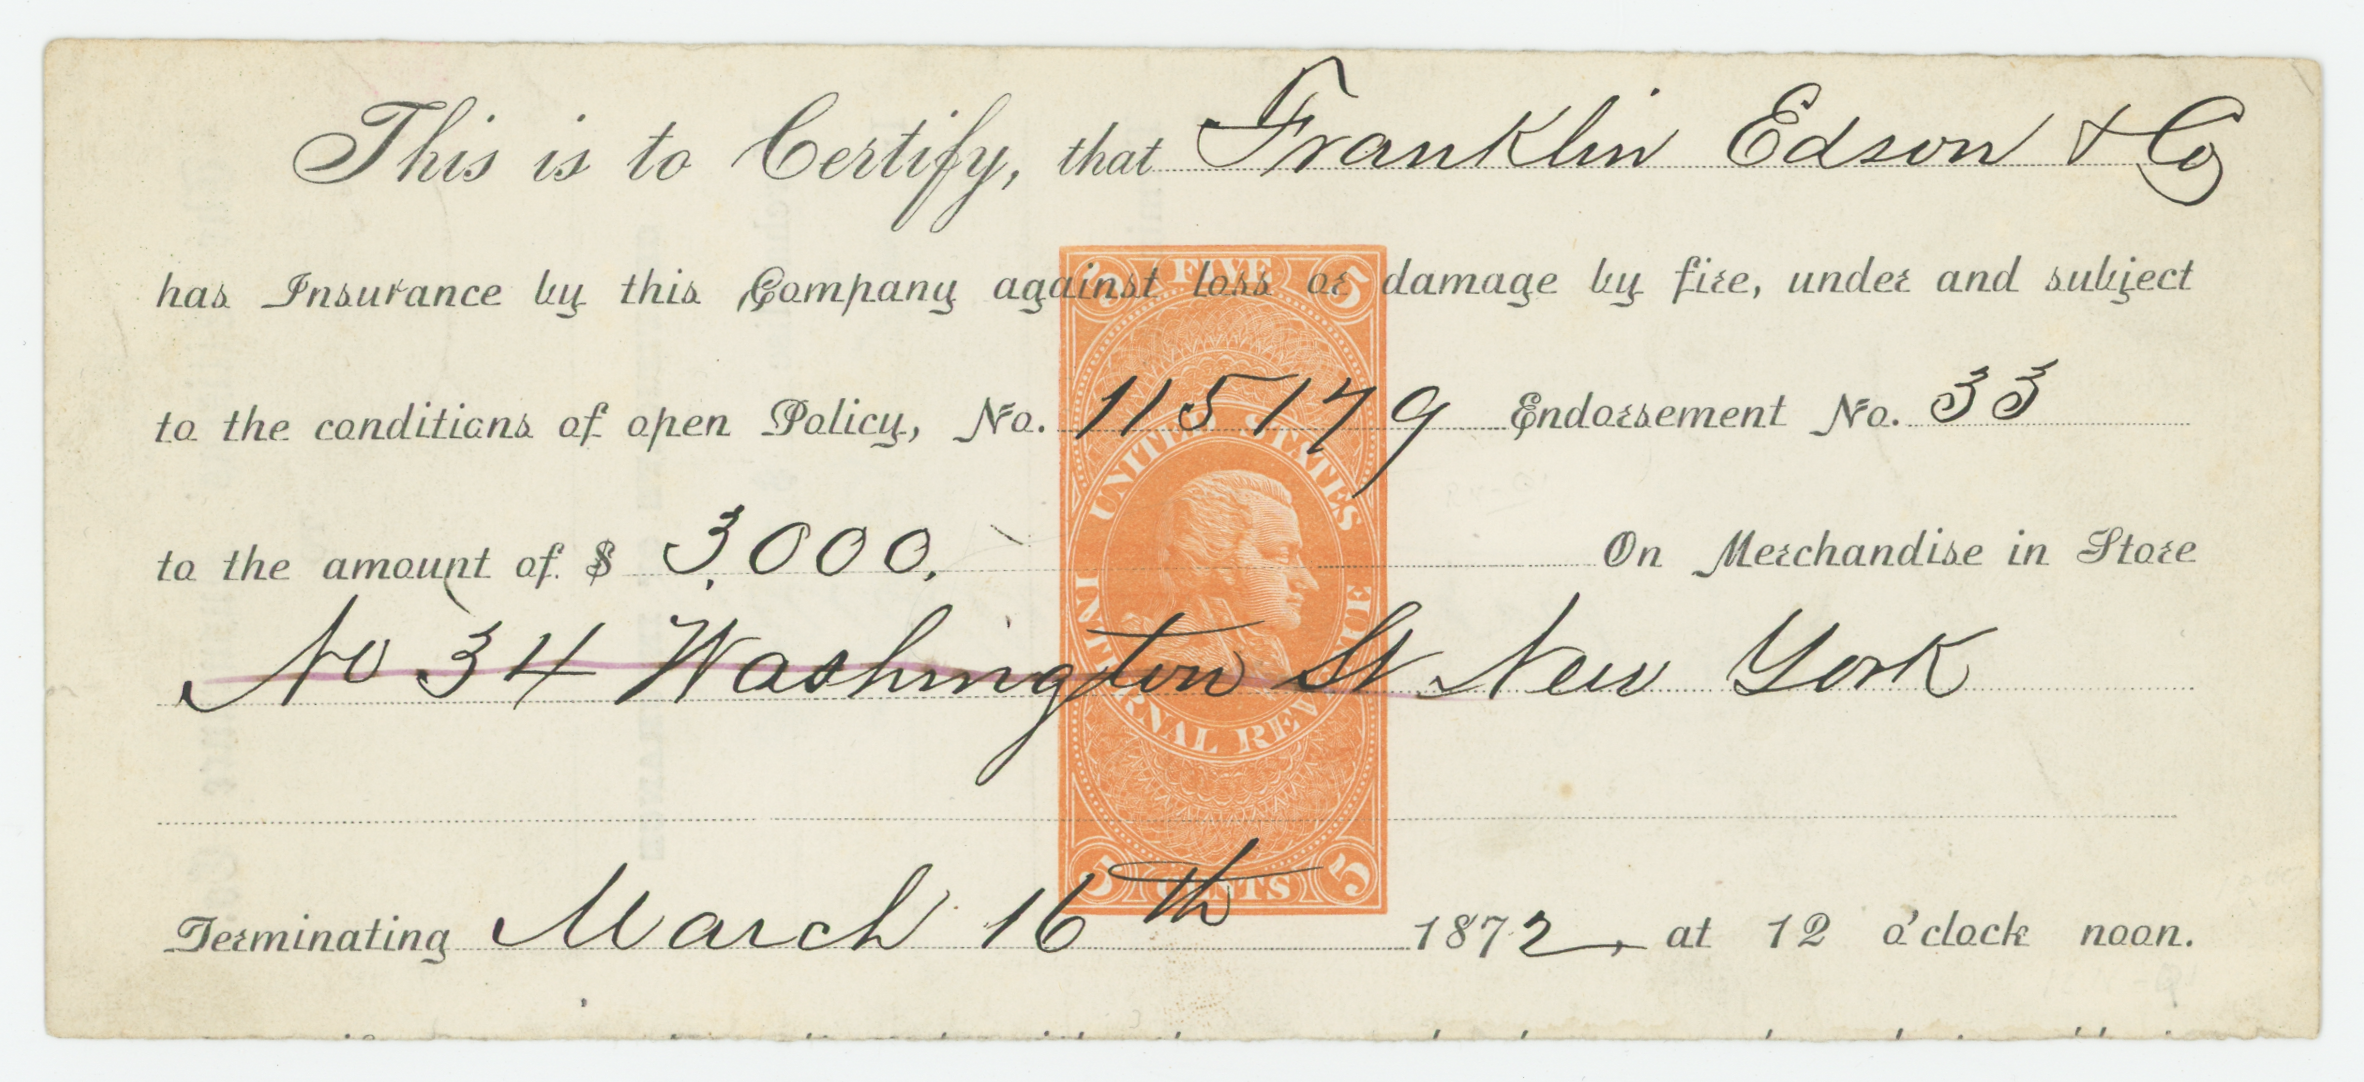 This is to Certify, that Franklin Edson & Co
has Insurance by this Company against loss or damage by fire, under and subject
to the conditions of open Policy, No. 115179 Endorsement No. 33
to the amount of $ 3,000. On Merchandise in Store
No 34 Washington St New York
Terminating March 16th 1872, at 12 o'clock noon.
FIVE
5 5
UNITED STATES
INTERNAL REVENUE
5 CENTS 5